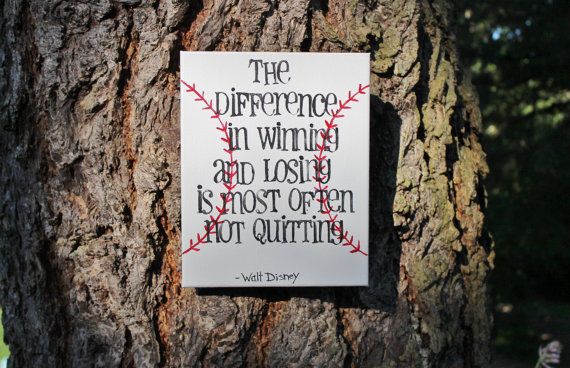 THE
DIFFERENCE
IN WINNING
AND LOSING
IS MOST OFTEN
NOT QUITTING
- Walt Disney